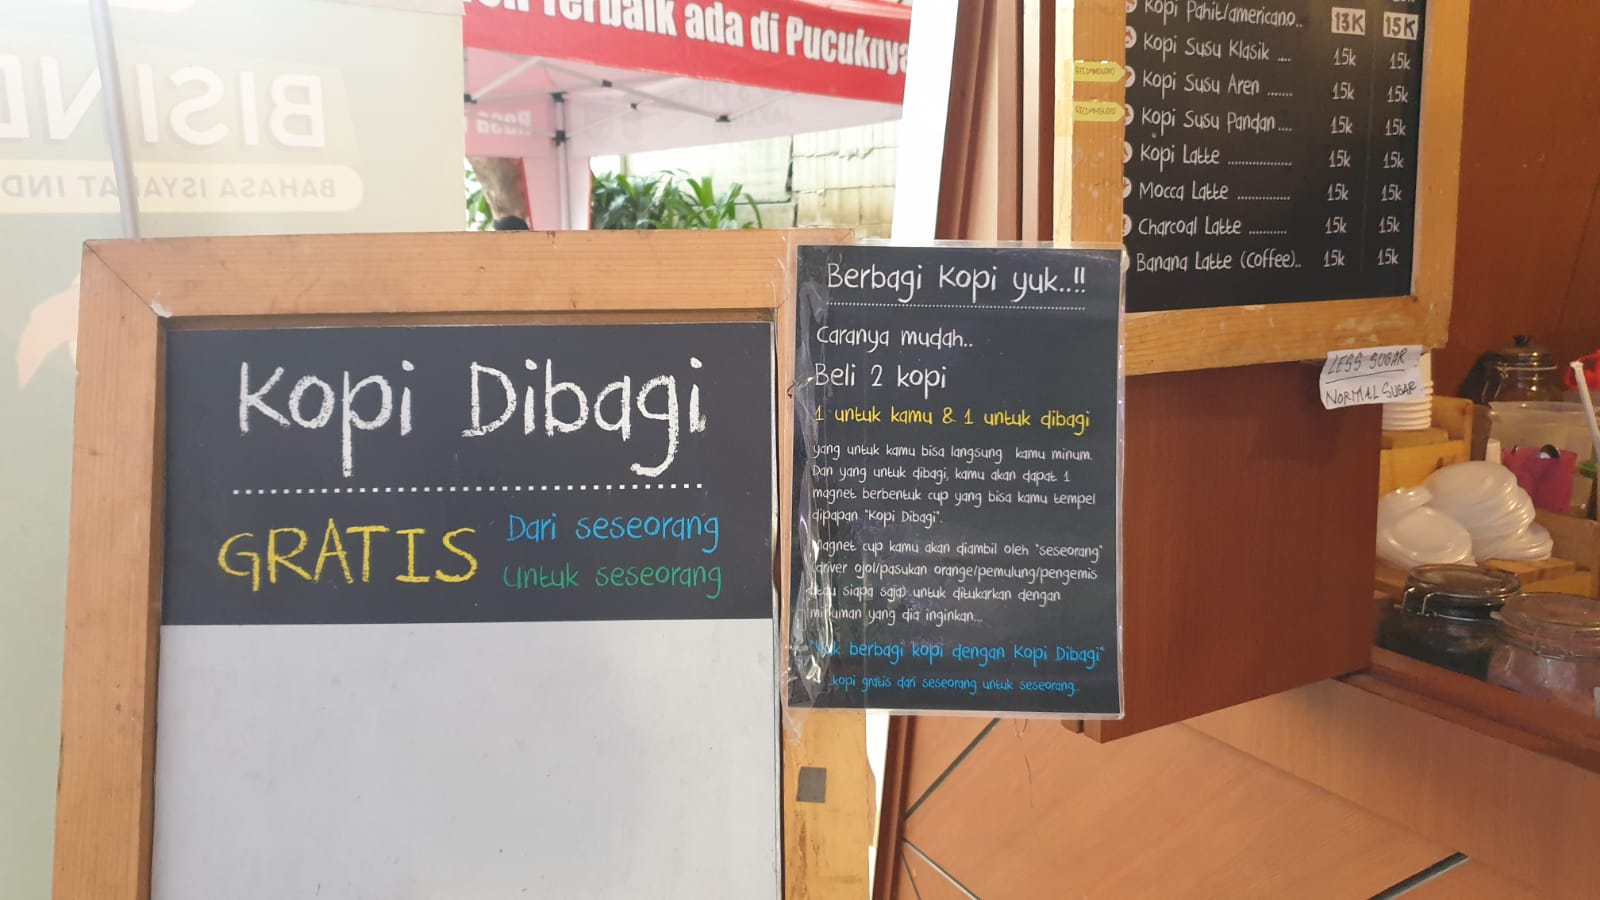 Terbaik ada di Pucuknya
BISIND
BAHASA ISYARAT IND
Kopi Dibagi
GRATIS
Dari seseorang
Untuk seseorang
Berbagi Kopi yuk..!!
Caranya mudah..
Beli 2 kopi
1 untuk kamu & 1 untuk dibagi
yang untuk kamu bisa langsung kamu minum.
Dan yang untuk dibagi, kamu akan dapat 1
magnet berbentuk cup yang bisa kamu tempel
dipapan "Kopi Dibagi".
Magnet cup kamu akan diambil oleh "seseorang"
(driver ojol/pasukan orange/pemulung/pengemis
atau siapa saja) untuk ditukarkan dengan
minuman yang dia inginkan...
"Yuk berbagi kopi dengan Kopi Dibagi"
kopi gratis dari seseorang untuk seseorang..
Kopi Pahit/americano.. 13K 15K
Kopi Susu Klasik .... 15k 15k
RECOMMENDED Kopi Susu Aren ....... 15k 15k
RECOMMENDED Kopi Susu Pandan .... 15k 15k
Kopi Latte ................... 15k 15k
Mocca Latte ............... 15k 15k
Charcoal Latte .......... 15k 15k
Banana Latte (Coffee).. 15k 15k
LESS SUGAR
NORMAL SUGAR